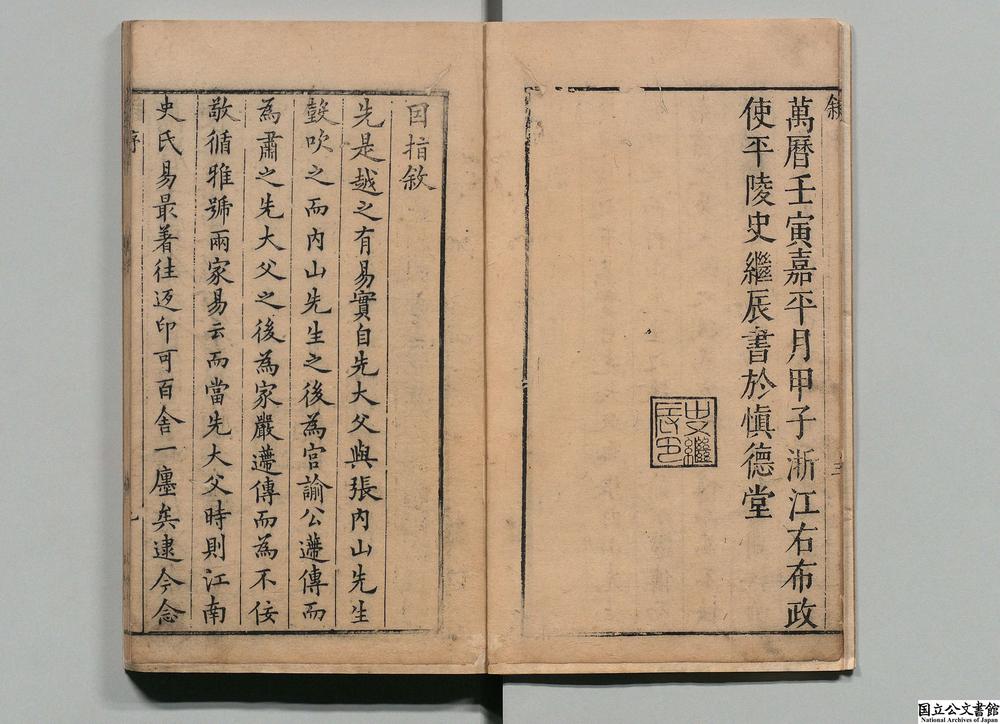 敘
萬曆壬寅嘉平月甲子浙江右布政
使平陵史繼辰書於慎德堂
史繼
辰印
因指敘
先是越之有易實自先大父與張內山先生
鼓吹之而內山先生之後為宮諭公遞傳而
為肅之先大父之後為家嚴遞傳而為不佞
敬循雅號兩家易云而當先大父時則江南
史氏易最着往返印可百舍一廛矣逮今念
序
国立公文書館
National Archives of Japan